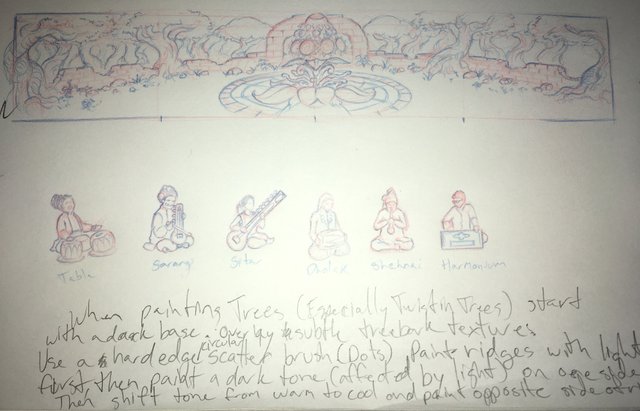 Tabla Sarangi Sitar Dholak Shehnai Harmonium
When painting Trees (Especially Twistin Trees) start
with a dark base. Overlay subtle treebark textures
Use a hard edge circular scatter brush (Dots) Paint ridges with light
first then paint a dark tone (affected by light) on one side
Then shift tone from warm to cool and paint opposite side